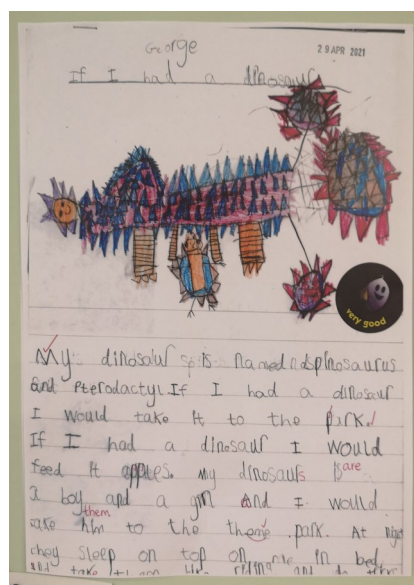 George
29 APR 2021
If I had a dinosaur
very good
My dinosaur is named spinosaurus
and Pterodactyl If I had a dinosaur
I would take it to the park.
If I had a dinosaur I would
feed it apples. My dinosaurs are
a boy and a girl and I would
take him them to the theme park. At night
they sleep on top on me in bed
and take them